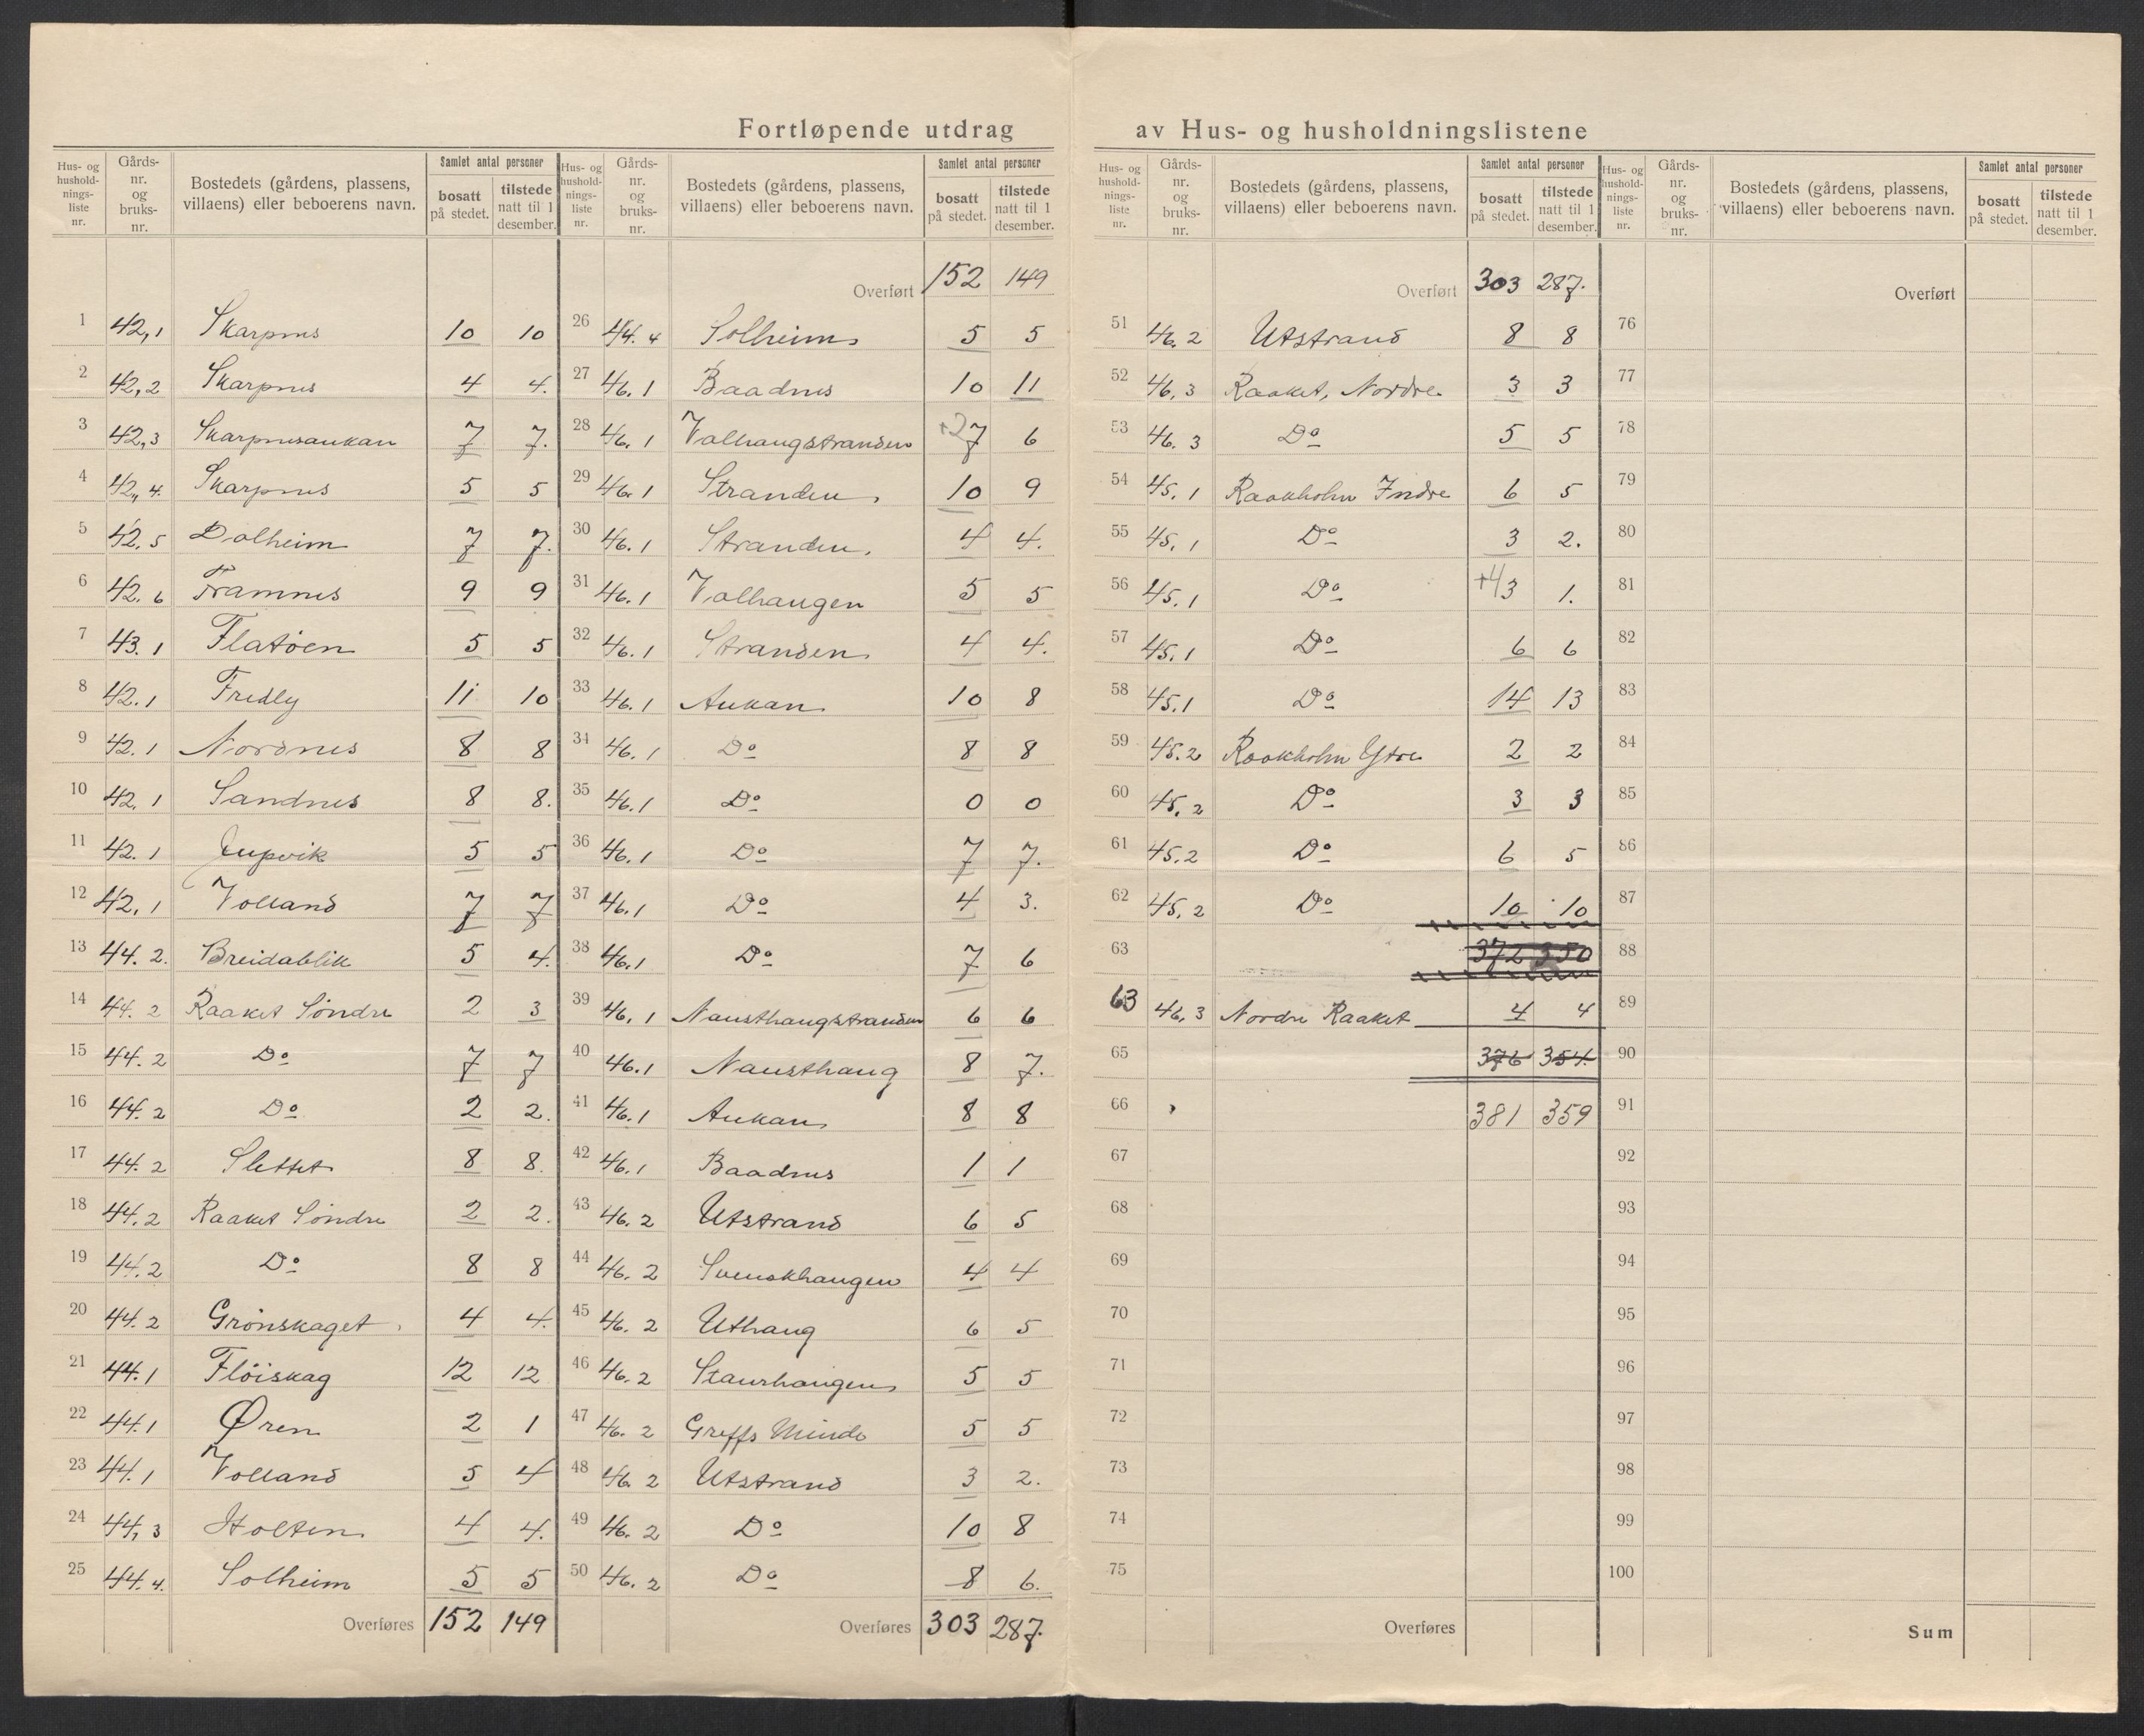 Fortløpende utdrag av Hus- og husholdningslistene
Hus- og hushold-nings-liste nr. Gårds-nr. og bruks-nr. Bostedets (gårdens, plassens, villaens) eller beboerens navn. Samlet antal personer bosatt på stedet. tilstede natt til 1 desember.
1 42,1 Skarpnes 10 10
2 42,2 Skarpnes 4 4.
3 42,3 Skarpnesaukan 7 7.
4 42,4. Skarpnes 5 5
5 42.5 Dalheim 7 7.
6 42.6 Framnes 9 9
7 43.1 Flatöen 5 5
8 42.1 Fredly 11 10
9 42.1 Nordnes 8 8
10 42.1 Sandnes 8 8.
11 42.1 Jupvik 5 5
12 42,1 Volland 7 7
13 44.2. Breidablik 5 4.
14 44.2 Raaket Söndre 2 3
15 44.2 Do 7 7
16 44.2 Do 2 2.
17 44.2 Slettet 8 8.
18 44.2 Raaket Söndre 2 2.
19 44.2 Do 8 8
20 44.2 Grönskaget 4 4.
21 44.1 Flöiskag 12 12
22 44.1 Øren 2 1
23 44.1 Volland 5 4
24 44,3 Holten 4 4.
25 44.4. Solheim 5 5
Overføres 152 149
Hus- og hushold-nings-liste nr. Gårds-nr. og bruks-nr. Bostedets (gårdens, plassens, villaens) eller beboerens navn. Samlet antal personer bosatt på stedet. tilstede natt til 1 desember.
Overført 152 149
26 44.4 Solheim 5 5
27 46.1 Baadnes 10 11
28 46.1 Valhaugstranden +2 7 6
29 46.1 Stranden 10 9
30 46.1 Stranden. 4 4.
31 46.1 Valhaugen 5 5
32 46.1 Stranden 4 4.
33 46.1 Aukan 10 8
34 46.1 Do 8 8
35 46.1 Do 0 0
36 46.1 Do 7 7.
37 46.1 Do 4 3.
38 46.1 Do 7 6
39 46.1 Nausthaugstranden 6 6
40 46.1 Nausthaug 8 7.
41 46.1 Aukan 8 8
42 46.1 Baadnes 1 1
43 46.2 Utstrand 6 5
44 46.2 Svenskhaugen 4 4
45 46.2 Uthaug 6 5
46 46.2 Staurhaugen 5 5
47 46.2 Greffs Minde 5 5
48 46.2 Utstrand 3 2.
49 46.2 Do 10 8
50 46.2 Do 8 6.
Overføres 303 287.
Hus- og hushold-nings-liste nr. Gårds-nr. og bruks-nr. Bostedets (gårdens, plassens, villaens) eller beboerens navn. Samlet antal personer bosatt på stedet. tilstede natt til 1 desember.
Overført 303 287.
51 46.2 Utstrand 8 8
52 46.3 Raaket, Nordre 3 3
53 46.3 Do 5 5
54 45.1 Raakholm Indre 6 5
55 45.1 Do 3 2.
56 45.1 Do +4 3 1.
57 45.1 Do 6 6
58 45.1 Do 14 13
59 45.2 Raakholm Ytre 2 2
60 45.2 Do 3 3
61 45.2 Do 6 5
62 45.2 Do 10 10
63 372 350
63 46.3 Nordre Raaket 4 4
65 376 354.
66 381 359
67
68
69
70
71
72
73
74
75
Overføres
Hus- og hushold-nings-liste nr. Gårds-nr. og bruks-nr. Bostedets (gårdens, plassens, villaens) eller beboerens navn. Samlet antal personer bosatt på stedet. tilstede natt til 1 desember.
Overført
76
77
78
79
80
81
82
83
84
85
86
87
88
89
90
91
92
93
94
95
96
97
98
99
100
Sum